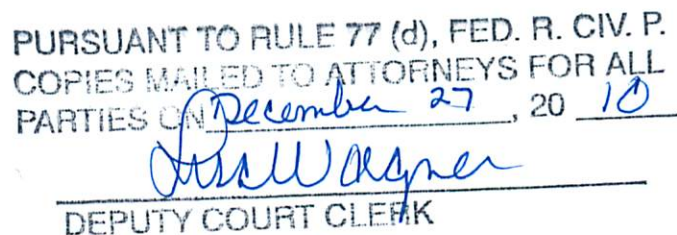 PURSUANT TO RULE 77 (d), FED. R. CIV. P.
COPIES MAILED TO ATTORNEYS FOR ALL
PARTIES ON December 27, 20 10
Lisa Wagner
DEPUTY COURT CLERK